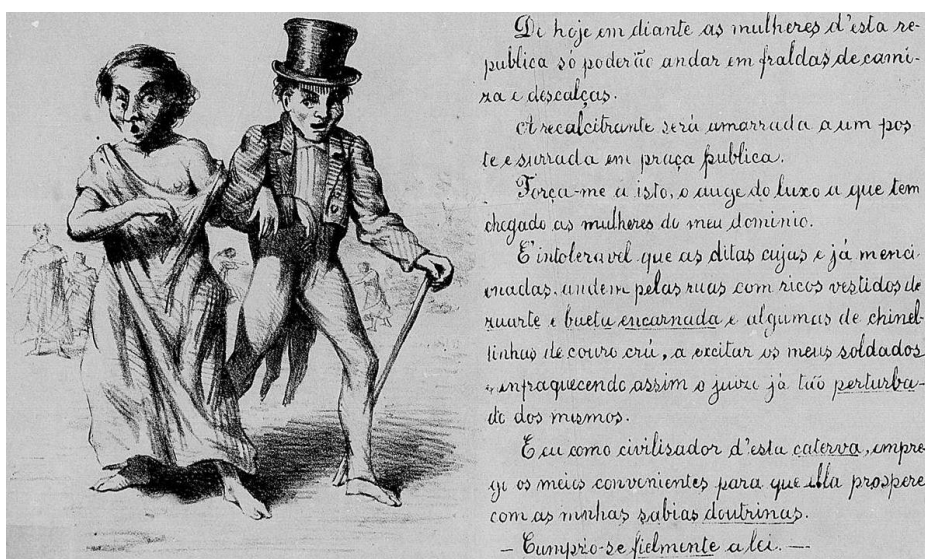 De hoje em diante as mulheres d'esta re-
publica só poderão andar em fraldas de cami-
za e descalças.
A recalcitrante será amarrada a um pos
te e surrada em praça publica.
Força-me a isto, o auge do luxo a que tem
chegado as mulheres do meu dominio.
É intoleravel que as ditas cujas e já menci
onadas, andem pelas ruas com ricos vestidos de
zuarte e baeta encarnada e algumas de chinel-
linhas de couro crú, a excitar os meus soldados
enfraquecendo assim o juizo já tão perturba-
do dos mesmos.
E eu como civilisador d'esta caterva, empre
gi os meios convenientes para que ella prospere
com as minhas sabias doutrinas.
— Cumprão-se fielmente a lei. —